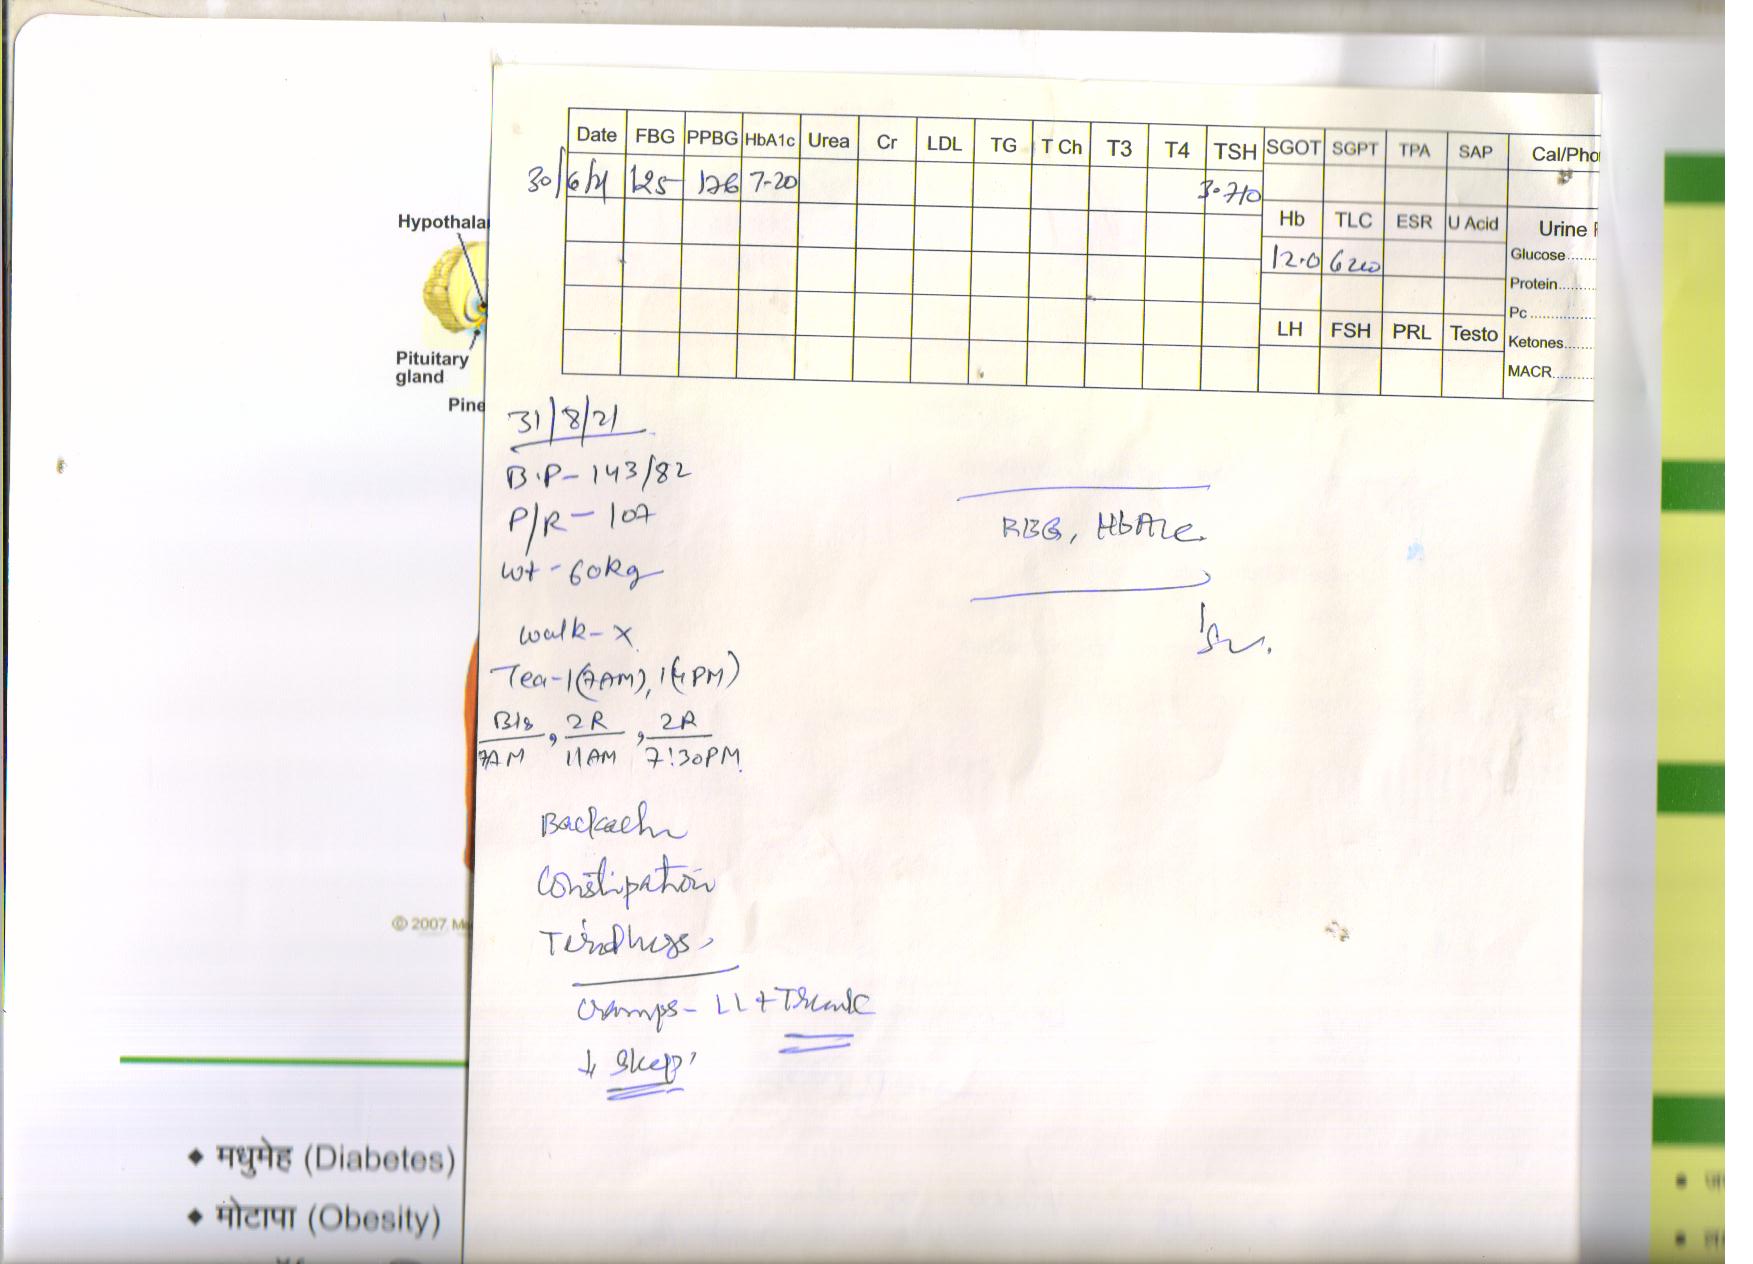 Date FBG PPBG HbA1c Urea Cr LDL TG T Ch T3 T4 TSH SGOT SGPT TPA SAP Cal/Pho
30/6/21 125 126 7-20 3.710
Hb TLC ESR U Acid Urine
12.0 6200
Glucose
Protein
Pc
LH FSH PRL Testo Ketones
MACR
Hypothala
Pituitary
gland
Pine
31/8/21
B.P- 143/82
P/R- 107
wt-60kg
RBG, HbA1c
walk- x
Tea-1(7AM), 1(4PM)
Bis, 2R, 2R
7AM 11AM 7:30PM
Backache
Constipation
Tiredness
Cramps- LL + Trunk
↓ Sleep
© 2007
◆ मधुमेह (Diabetes)
◆ मोटापा (Obesity)